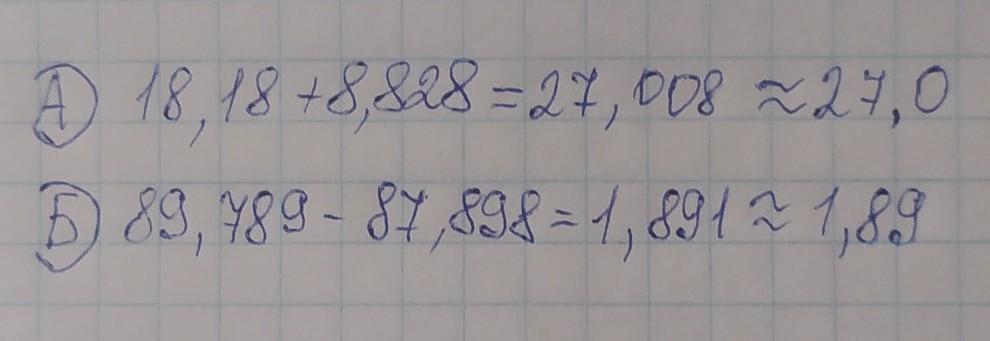 А) 18,18+8,828=27,008≈27,0
Б) 89,789-87,898=1,891≈1,89